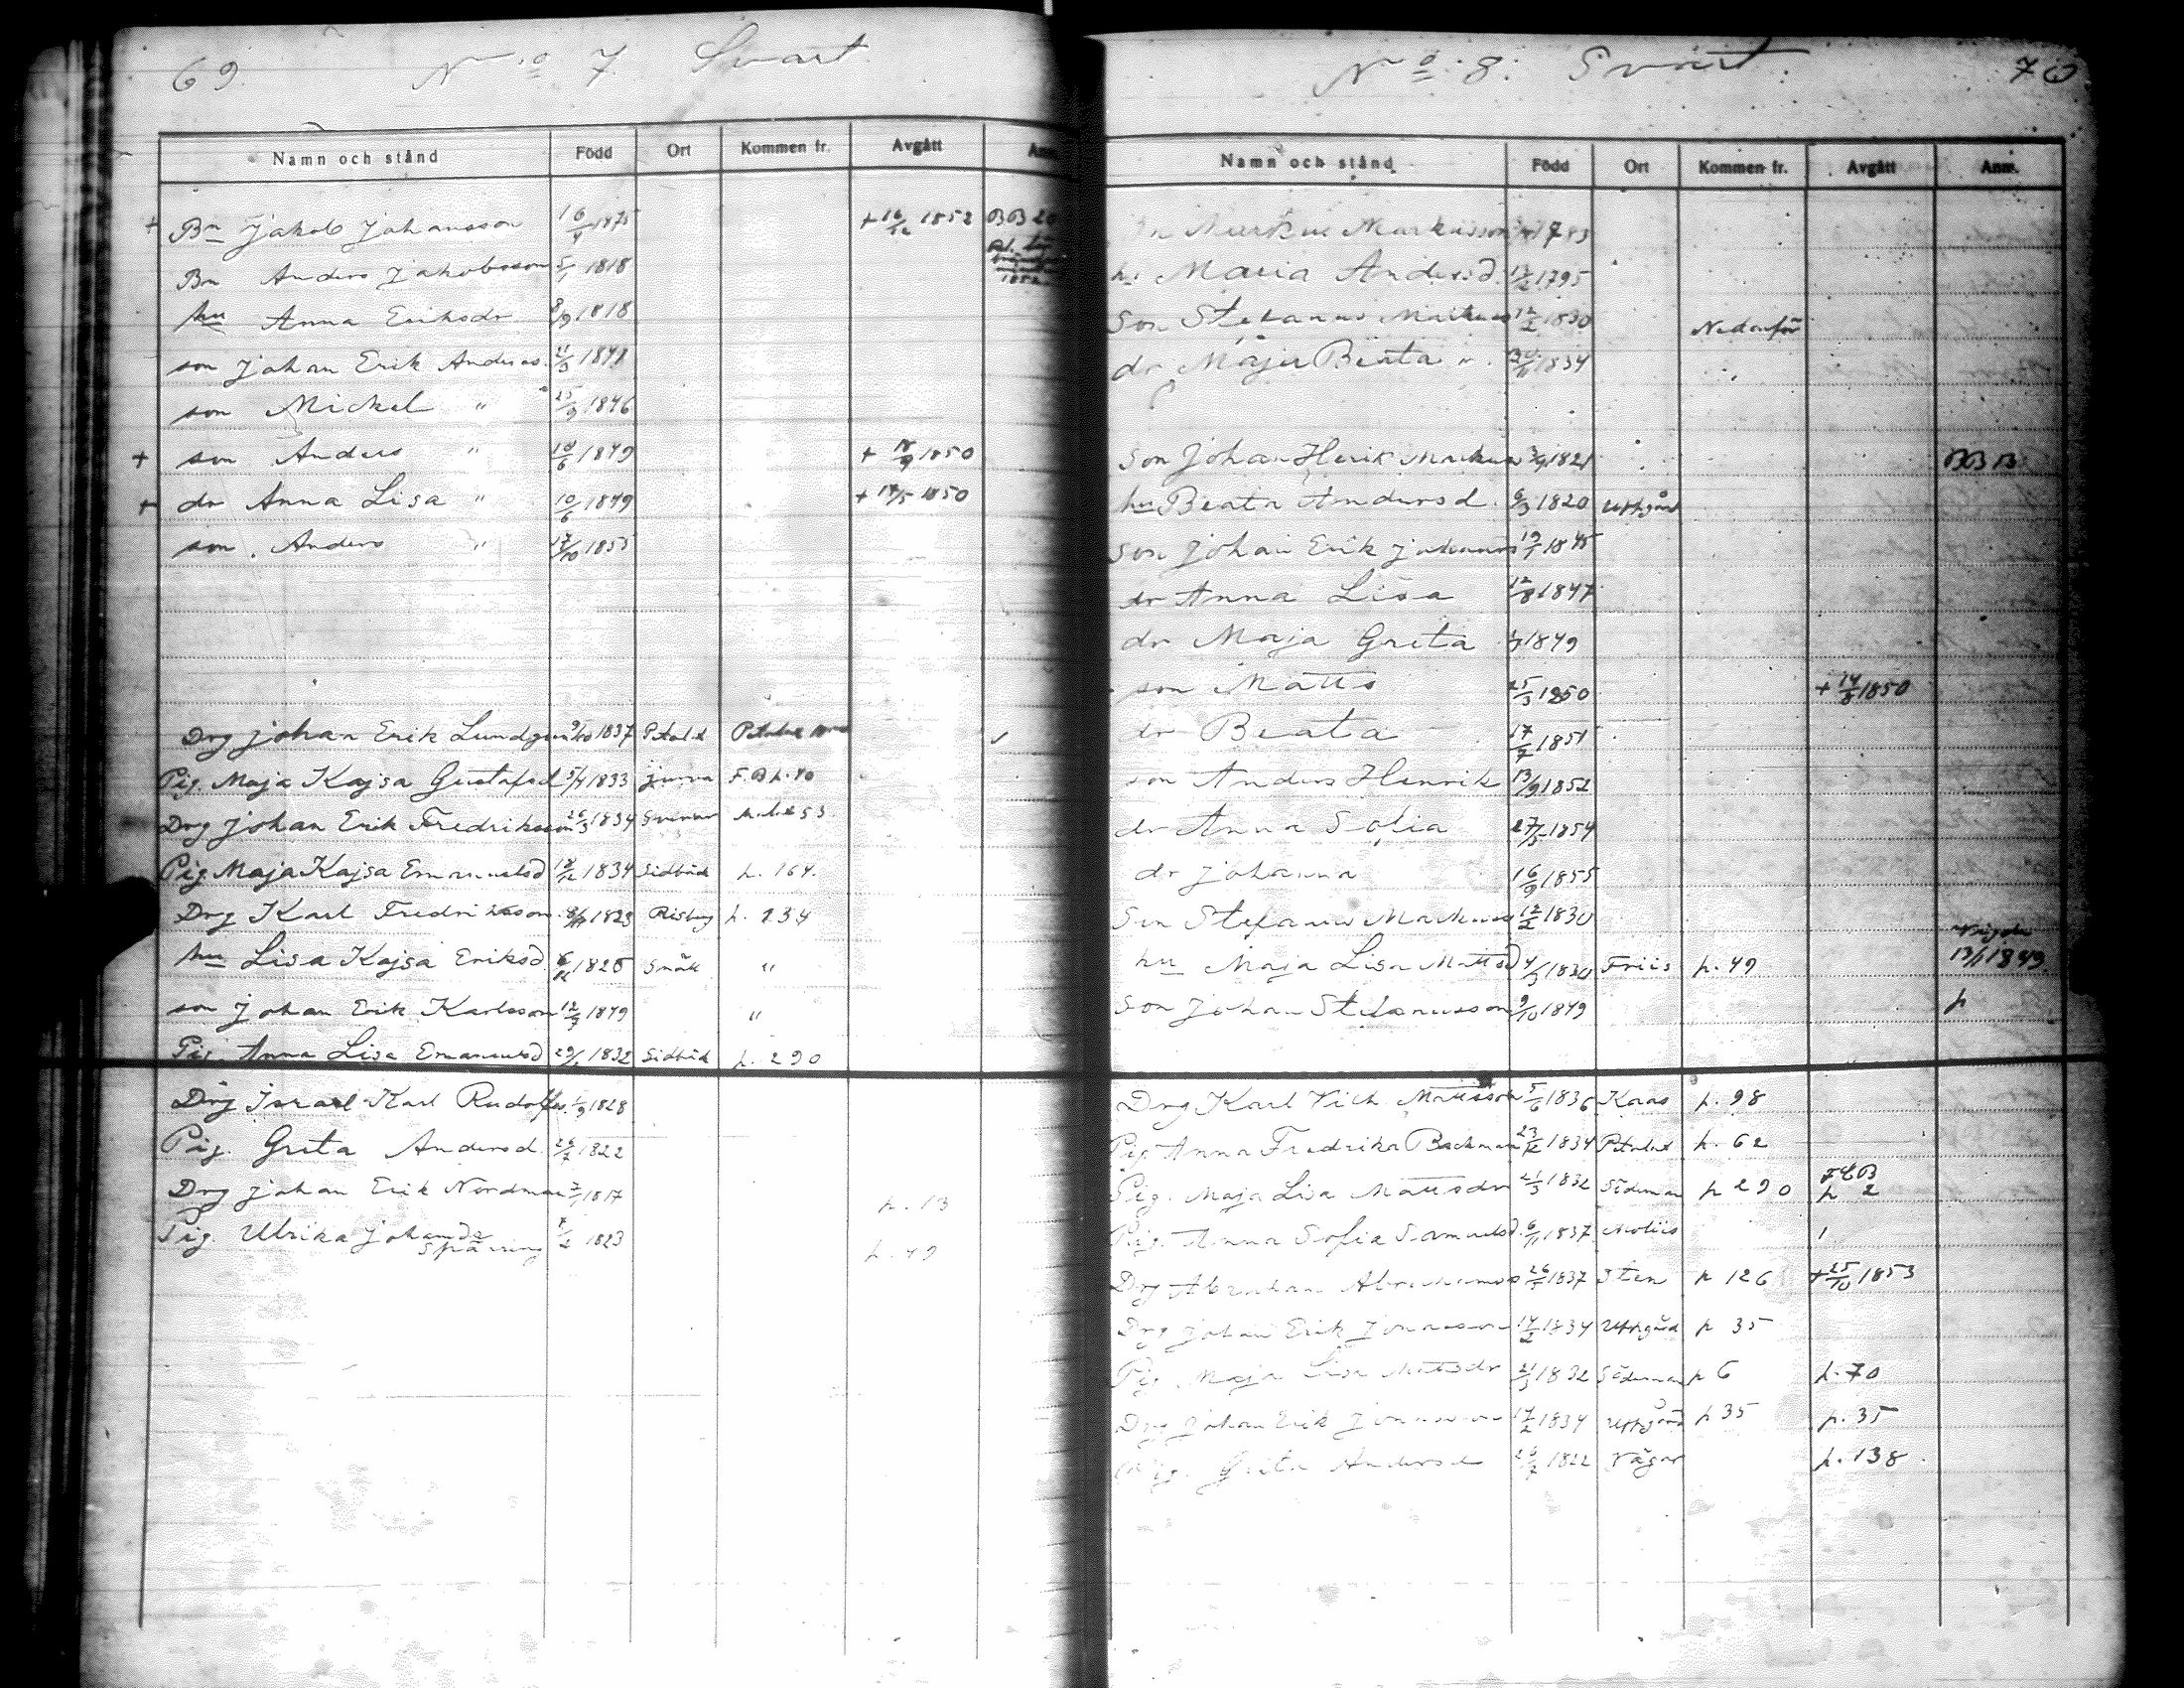 69. No 7 Svart
Namn och stånd Född Ort Kommen fr. Avgått Anm.
+ Bn Jakob Johansson 16/4 1775 + 16/12 1852 BB 20
Bn Anders Jakobsson 5/1 1818
hu Anna Eriksdr 8/9 1818
son Johan Erik Anderss. 1841
son Mickel " 25/9 1846
+ son Anders " 10/6 1849 + 18/9 1850
+ dr Anna Lisa " 10/6 1849 + 14/5 1850
son Anders " 17/10 1855
Drg Johan Erik Lundqvist 9/10 1837 Petalax Petalax
Pig. Maja Kajsa Gustafsd 5/4 1833 Jurva F.B p. 40
Drg Johan Erik Fredriksson 26/3 1834 53
Pig. Maja Kajsa Emanuelsd 18/12 1834 Sidbäck p. 164.
Drg Karl Fredriksson 1823 Risberg p. 234
hu Lisa Kajsa Eriksd. 1826 Snäll "
son Johan Erik Karlsson 12/9 1849 "
Pig. Anna Lisa Emanuelsd 29/1 1832 Sidbäck p. 290
Drg Israel Karl Rudolfss. 1/9 1828
Pig. Greta Andersd. 26/7 1822
Drg Johan Erik Nordman 7/1 1817 p. 13
Pig. Ulrika Johansdr 7/2 1823 p. 49
Spärring
No 8. Svart. 70
Namn och stånd Född Ort Kommen fr. Avgått Anm.
Bn Markus Markusson 1783
hu Maria Andersd. 13/2 1795
Son Stefanus Markuss 12/2 1830 Nedanför
dr Maja Beata " 1834 "
Son Johan Henrik Markuss 3/9 1821 BB 13
hu Beata Andersd. 6/3 1820 Uppgård
Son Johan Erik Johanss 19/1 1845
dr Anna Lisa 12/8 1847
dr Maja Greta 1849
son Matts 25/3 1850 + 14/8 1850
dr Beata 17/7 1851
son Anders Henrik 13/9 1852
dr Anna Sofia 27/5 1854
dr Johanna 16/9 1855
Son Stefanus Markuss 12/2 1830
hu Maja Lisa Mattsd 4/3 1830 Friis p. 49 Vigda 13/1 1849
Son Johan Stefanusson 9/10 1849 p
Drg Karl Vilh. Mattsson 5/6 1836 Kaas p. 98
Pig. Anna Fredrika Backman 23/12 1834 Petalax p. 62
Pig. Maja Lisa Mattsdr 21/3 1832 Söderman p 290 p 2
Pig. Anna Sofia Samuelsd. 6/11 1837 Molnis
Drg Abraham Abrahamss 26/5 1837 Sten p 126 + 25/10 1853
Drg Johan Erik Jonasson 14/2 1834 Uppgård p 35
Pig. Maja Lisa Mattsdr 21/3 1832 Söderman p 6 p. 70
Drg Johan Erik Jonasson 14/2 1834 Uppgård p 35 p. 35
Pig. Greta Andersd 26/7 1822 Vägar p. 138